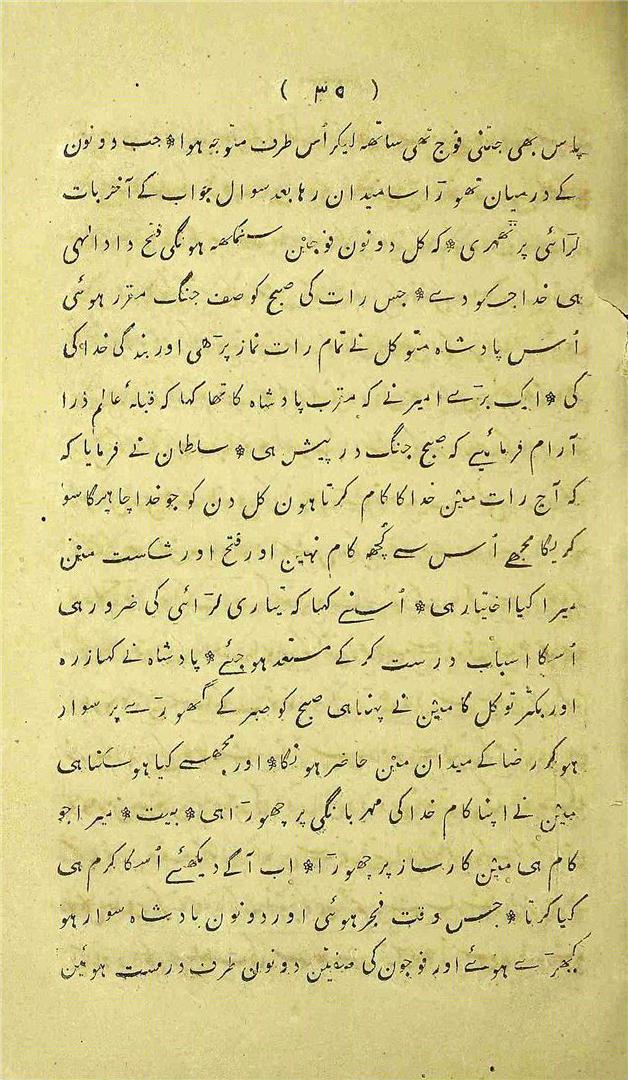 ( ٣٥ )
پاس بھی جتنی فوج تھی ساتھہ لیکر اُس طرف متوجہ ہوا * جب دونون
کے درمیان تھوڑا سا میدان رہا بعد سوال جواب کے آخر بات
لڑائی پر ٹھہری * کہ کل دونون فوجین سنمکھہ ہونگی فتح داد الہی
ہی خدا جسکو دے * جس رات کی صبح کو صف جنگ مقرر ہوئی
اُس پادشاہ متوکل نے تمام رات نماز پڑھی اور بندگی خدا کی
کی * ایک بڑے امیر نے کہ مقرب پادشاہ کا تھا کہا کہ قبلۂ عالم ذرا
آرام فرمائیے کہ صبح جنگ در پیش ہی * سلطان نے فرمایا کہ
کہ آج رات مین خدا کا کام کرتا ہون کل دن کو جو خدا چاہیگا سو
کریگا مجھے اُس سے کُچھہ کام نہین اور فتح اور شکست مین
میرا کیا اختیار ہی * اُسنے کہا کہ تیاری لڑائی کی ضرور ہی
اُسکا اسباب درست کر کے مستعد ہو جئے * پادشاہ نے کہا زرہ
اور بکتر توکل کا مین نے پہنا ہی صبح کو صبر کے گھوڑے پر سوار
ہو کر رضا کے میدان مین حاضر ہونگا * اور مجھسے کیا ہو سکتا ہی
مین نے اپنا کام خدا کی مہربانگی پر چھوڑا ہی * بیت * میرا جو
کام ہی مین کارساز پر چھوڑا * اب آگے دیکھئے اُسکا کرم ہی
کیا کرتا * جس وقت فجر ہوئی اور دونون بادشاہ سوار ہو
کھڑے ہوئے اور فوجون کی صفین دونون طرف درست ہوئین